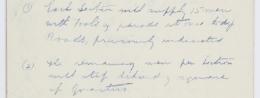 (1) Each Section will supply 15 men
with tools, parade at once to dig
Roads, previously indicated
(2) The remaining men per Section
will
of quarters.